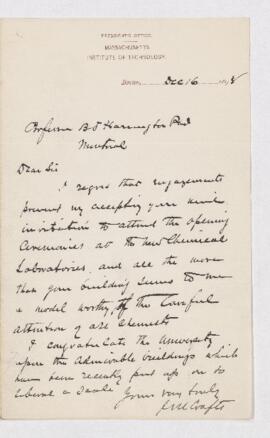 PRESIDENT'S OFFICE.
MASSACHUSETTS
INSTITUTE OF TECHNOLOGY.
Boston, Dec 16 189
Professor B J Harrington PhD
Montreal
Dear Sir
I regret that engagements
prevent my accepting your kind
invitation to attend the opening
Ceremonies at the new Chemical
Laboratories, and all the more
that your building seems to me
a model worthy of the careful
attention of all Chemists
I congratulate the University
upon the admirable buildings which
have been recently put up on so
liberal a scale
Yours very truly
J M Crafts